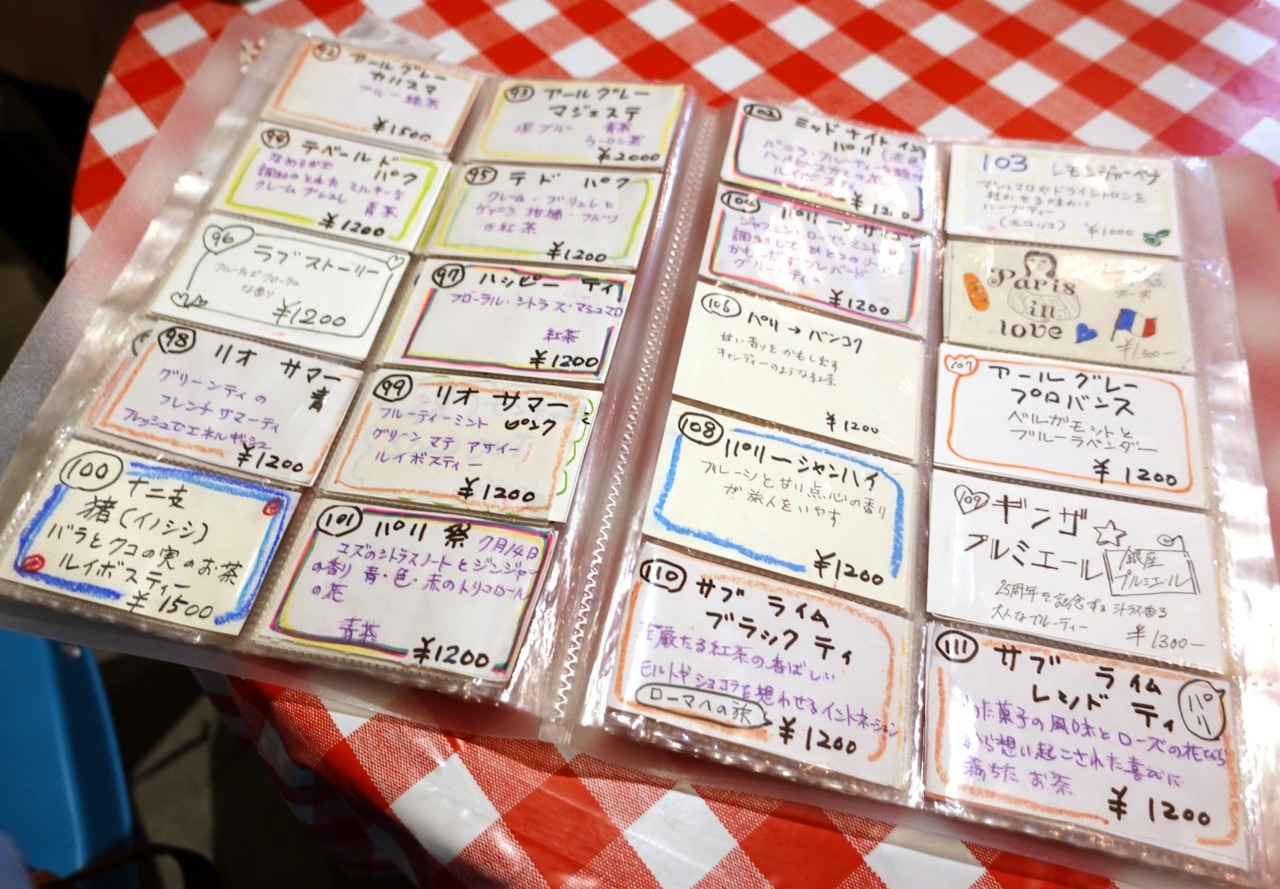 92
アールグレー
カリスマ
ブルー 緑茶
¥1500
93
アールグレー
マジェステ
ブルー 青茶
ウーロン茶
¥2000
94
テベールド
パク
なめらかで
調和のとれた ミルキーな
クレームブリュレ
青茶
¥1200
95
テ ド パク
クレーム・ブリュレと
ヴァニラ 柑橘・フルーツ
の紅茶
¥1200
96
ラブストーリー
な香り
¥1200
97
ハッピー ティ
フローラル・シトラス・マシュマロ
紅茶
¥1200
98
リオ サマー
青
グリーンティの
フレンチサマーティ
フレッシュでエネルギッシュ
¥1200
99
リオ サマー
ピンク
フルーティーミント
グリーン マテ アサイー
ルイボスティー
¥1200
100
十二支
猪(イノシシ)
バラとクコの実のお茶
ルイボスティー
¥1500
101
パリ祭 7月14日
ユズのシトラスノートとジンジャー
の香り 青・色・赤のトリコロール
の花
青茶
¥1200
102
ミッドナイト イン
パリ
バニラ・フルーティ
ハイビスカス
ルイボス
¥1200
103
レモンジャーペナ
マシュマロやドライシトロンを
想わせる味わい
ハーブティー
(モロッコ)
¥1000
ジャスミン・ローズ・ミント
グリーンティ
¥1200
Paris
in
love
¥1300-
106
パリ→バンコク
甘い香りをかもします
キャンディーのような紅茶
¥1200
107
アールグレー
プロバンス
ベルガモットと
ブルーラベンダー
¥1200
108
パリーシャンハイ
プルーンと甘い点心の香り
が旅人をいやす
¥1200
109
ギンザ
プルミエール
銀座
プルミエール
25周年を記念するシトラス香る
大人なフルーティー
¥1300-
110
サブ ライム
ブラック ティ
荘厳たる紅茶の香ばしい
モルトやショコラを想わせるイントネーション
ローマへの旅
¥1200
111
サブ ライム
レッド ティ
パリ
菓子の風味とローズの花びら
から想い起こされた喜びに
満ちた お茶
¥1200